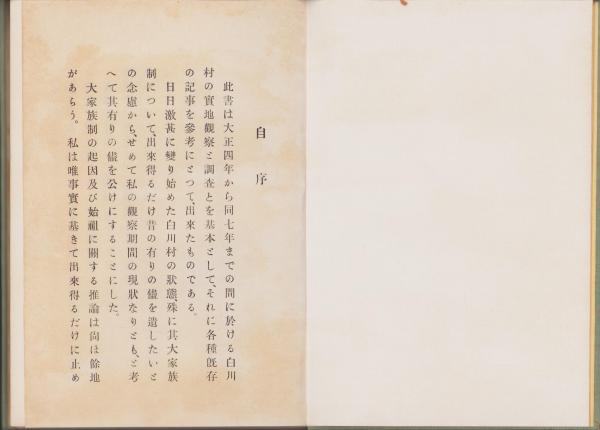 自序
此書は大正四年から同七年までの間に於ける白川
村の實地觀察と調査とを基本として、それに各種既存
の記事を參考にとつて、出來たものである。
日日激甚に變り始めた白川村の狀態、殊に其大家族
制について、出來得るだけ昔の有りの儘を遺したいと
の念慮から、せめて私の觀察期間の現狀なりとも、と考
へて其有りの儘を公けにすることにした。
大家族制の起因及び始祖に關する推論は尙ほ餘地
があらう。私は唯事實に基きて出來得るだけに止め